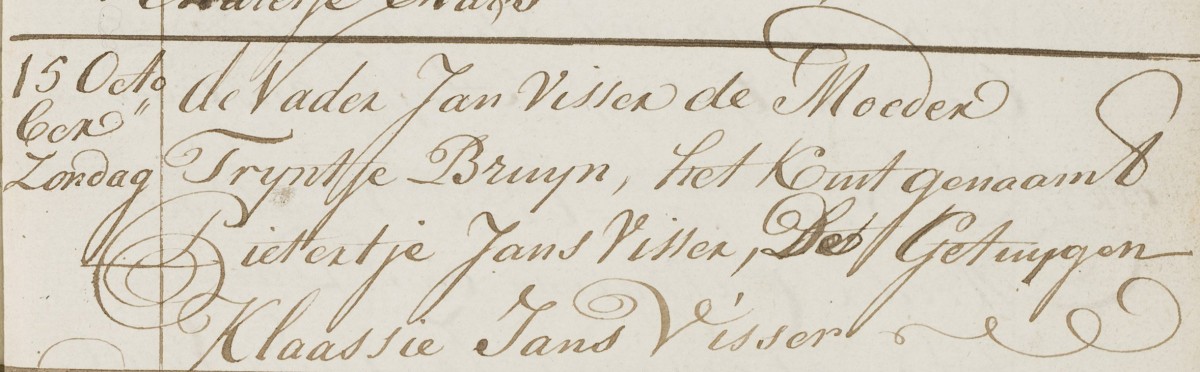 15 Octo
ber"
Zondag
de Vader Jan Visser de Moeder
Tryntje Bruyn, het Kint genaamt
Pietertje Jans Visser, De Getuygen
Klaassie Jans Visser